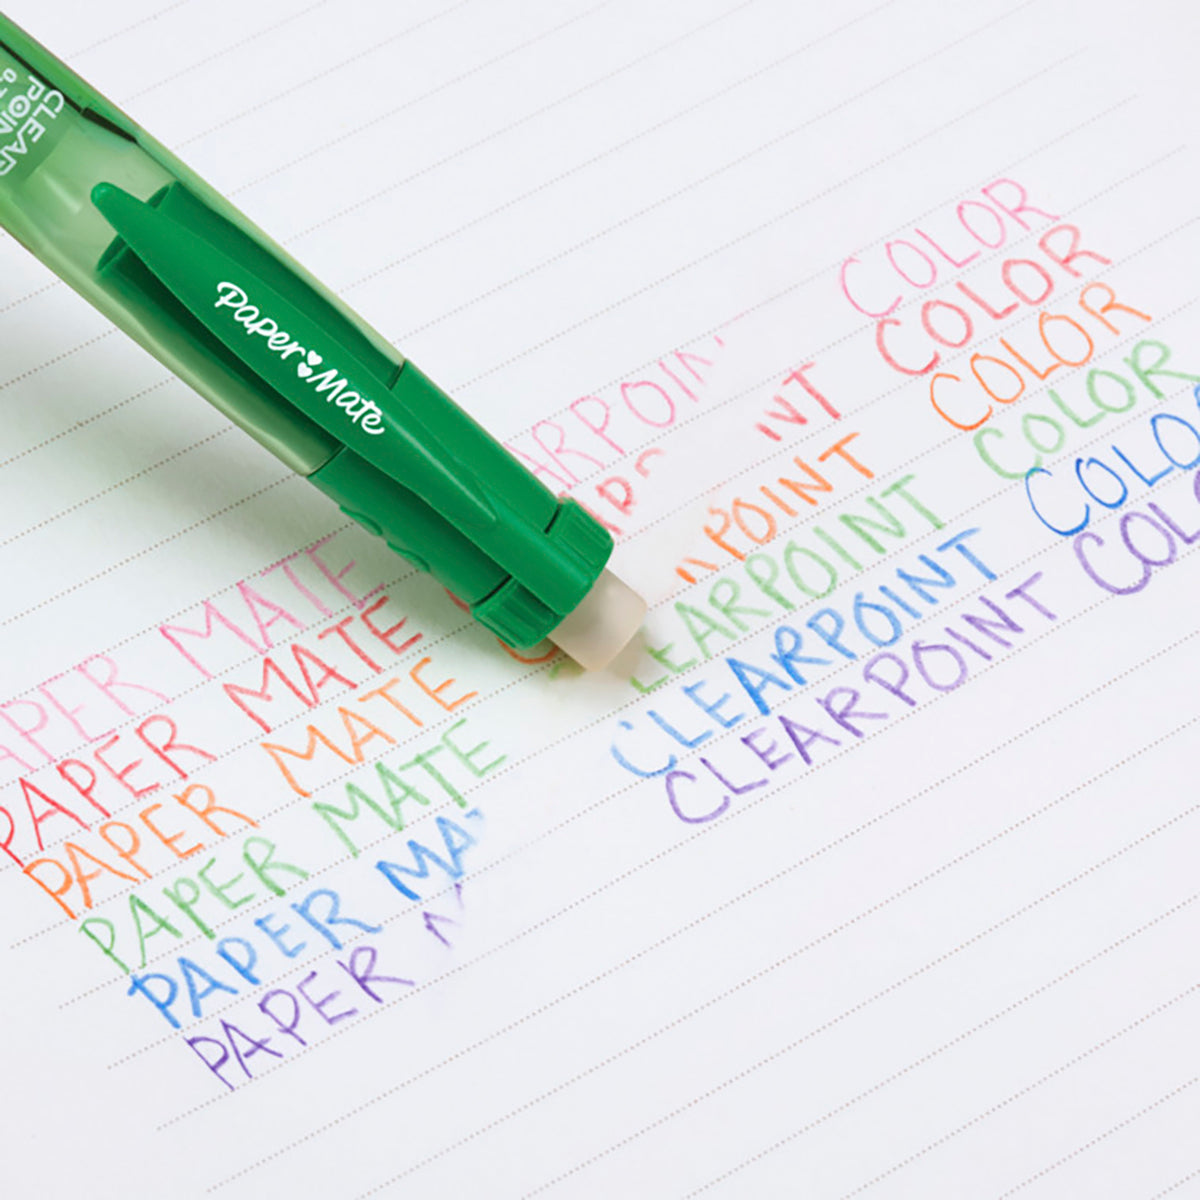 CLEAR
POINT
0.7
Paper Mate
APER MATE EARPOIN COLOR
PAPER MATE ARP INT COLOR
PAPER MATE C POINT COLOR
PAPER MATE LEARPOINT COLOR
PAPER MA CLEARPOINT COLO
PAPER M CLEARPOINT COL